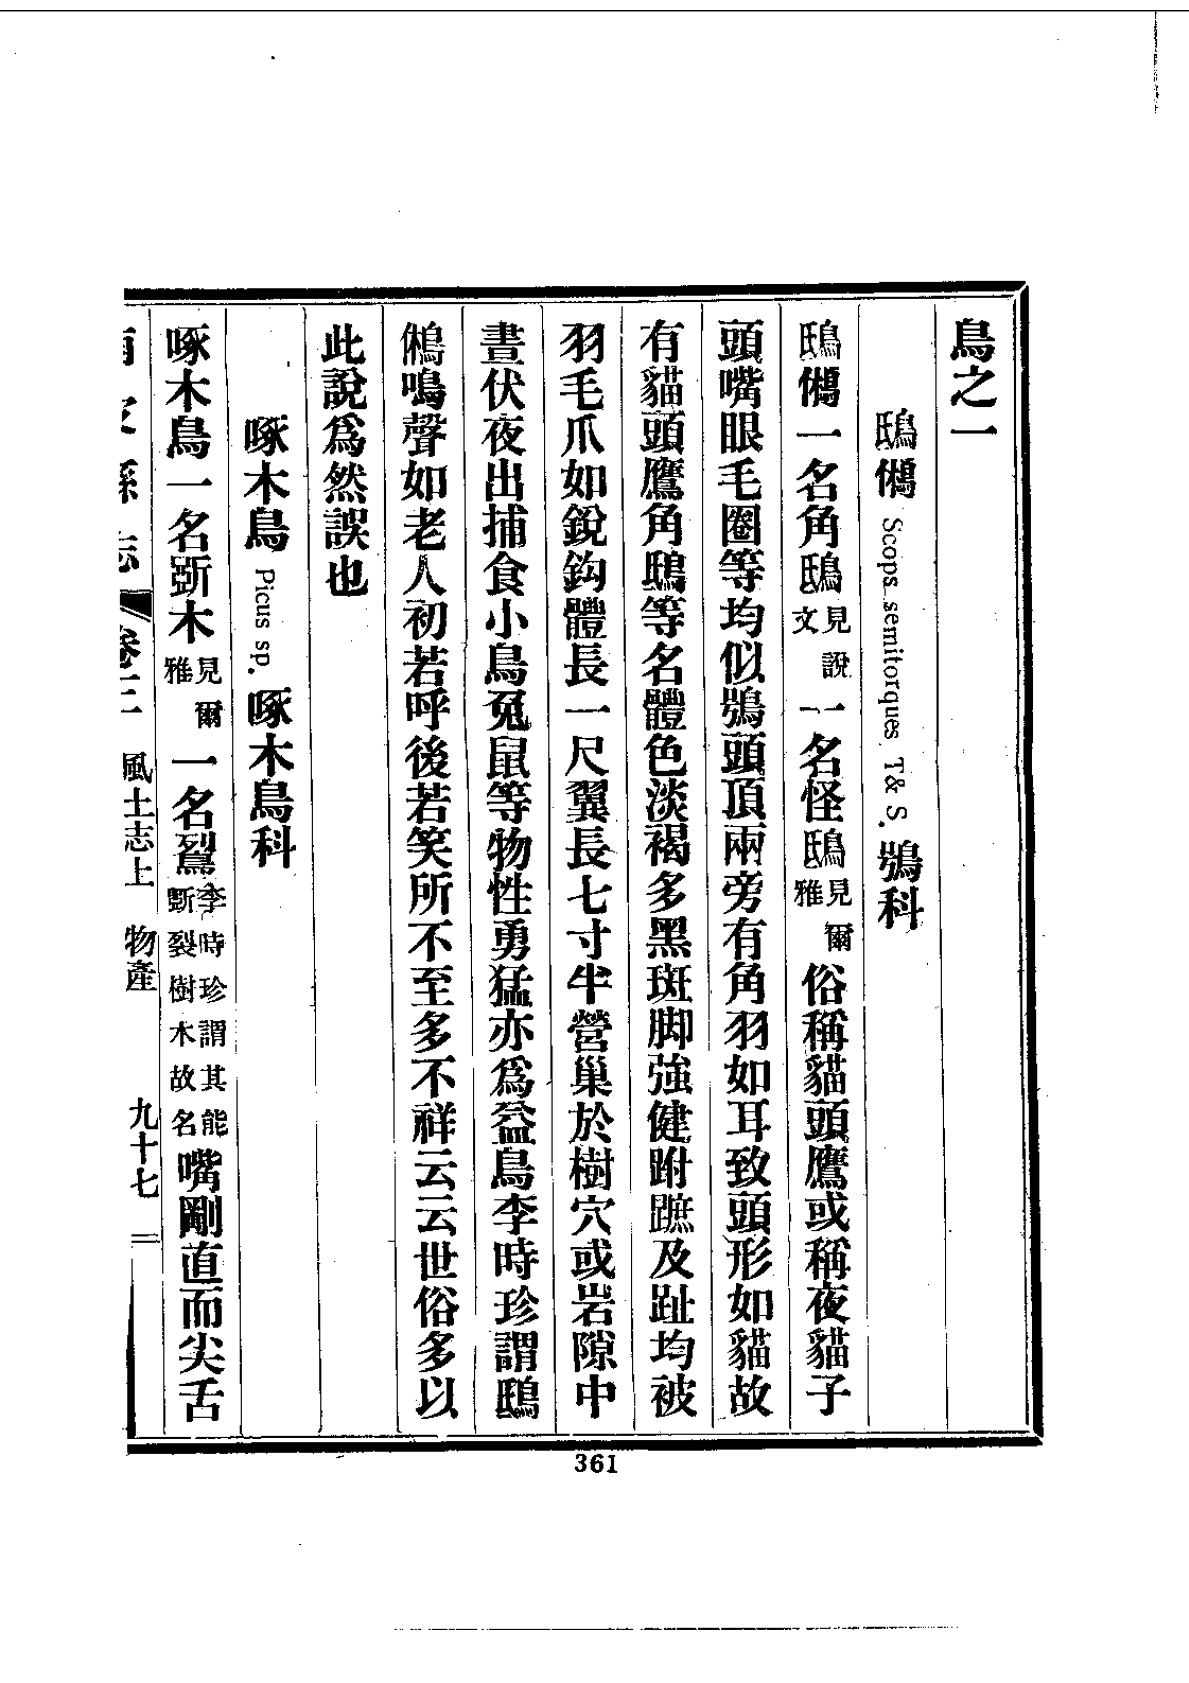 鳥之一
鴟鵂 Scops semitorques T& S. 鴞科
鴟鵂一名角鴟見說文一名怪鴟見爾雅俗稱貓頭鷹或稱夜貓子
頭嘴眼毛圈等均似鴞頭頂兩旁有角羽如耳致頭形如貓故
有貓頭鷹角鴟等名體色淡褐多黑斑脚強健跗蹠及趾均被
羽毛爪如銳鈎體長一尺翼長七寸半營巢於樹穴或岩隙中
晝伏夜出捕食小鳥兎鼠等物性勇猛亦爲益鳥李時珍謂鴟
鵂鳴聲如老人初若呼後若笑所不至多不祥云云世俗多以
此說爲然誤也
啄木鳥 Picus sp. 啄木鳥科
啄木鳥一名斲木見爾雅一名鴷李時珍謂其能斲裂樹木故名嘴剛直而尖舌
南皮縣志 卷三 風土志上 物產 九十七
361